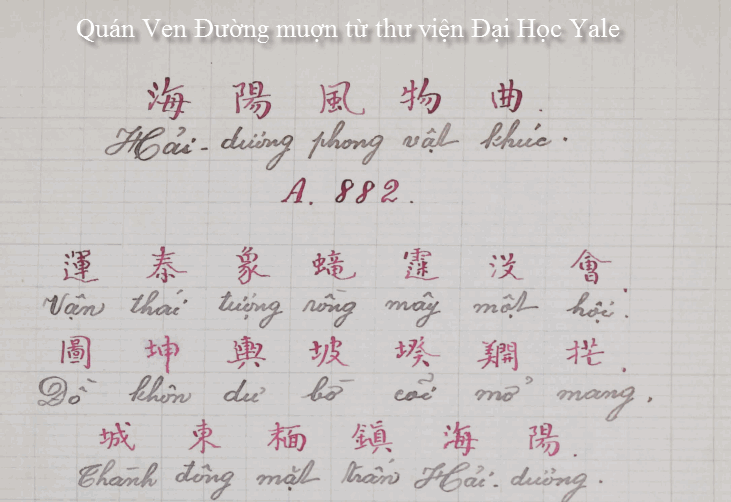 Quán Ven Đường muợn từ thư viện Đại Học Yale
海陽風物曲.
Hải-dương phong vật khúc.
A. 882.
運泰象蠬𩄲没會.
Vận thái tượng rồng mây một hội.
圖坤輿坡堺𨷑恾.
Đồ khôn dư bờ cõi mở mang.
城東𩈘鎮海陽.
Thành đông mặt trấn Hải-dương.